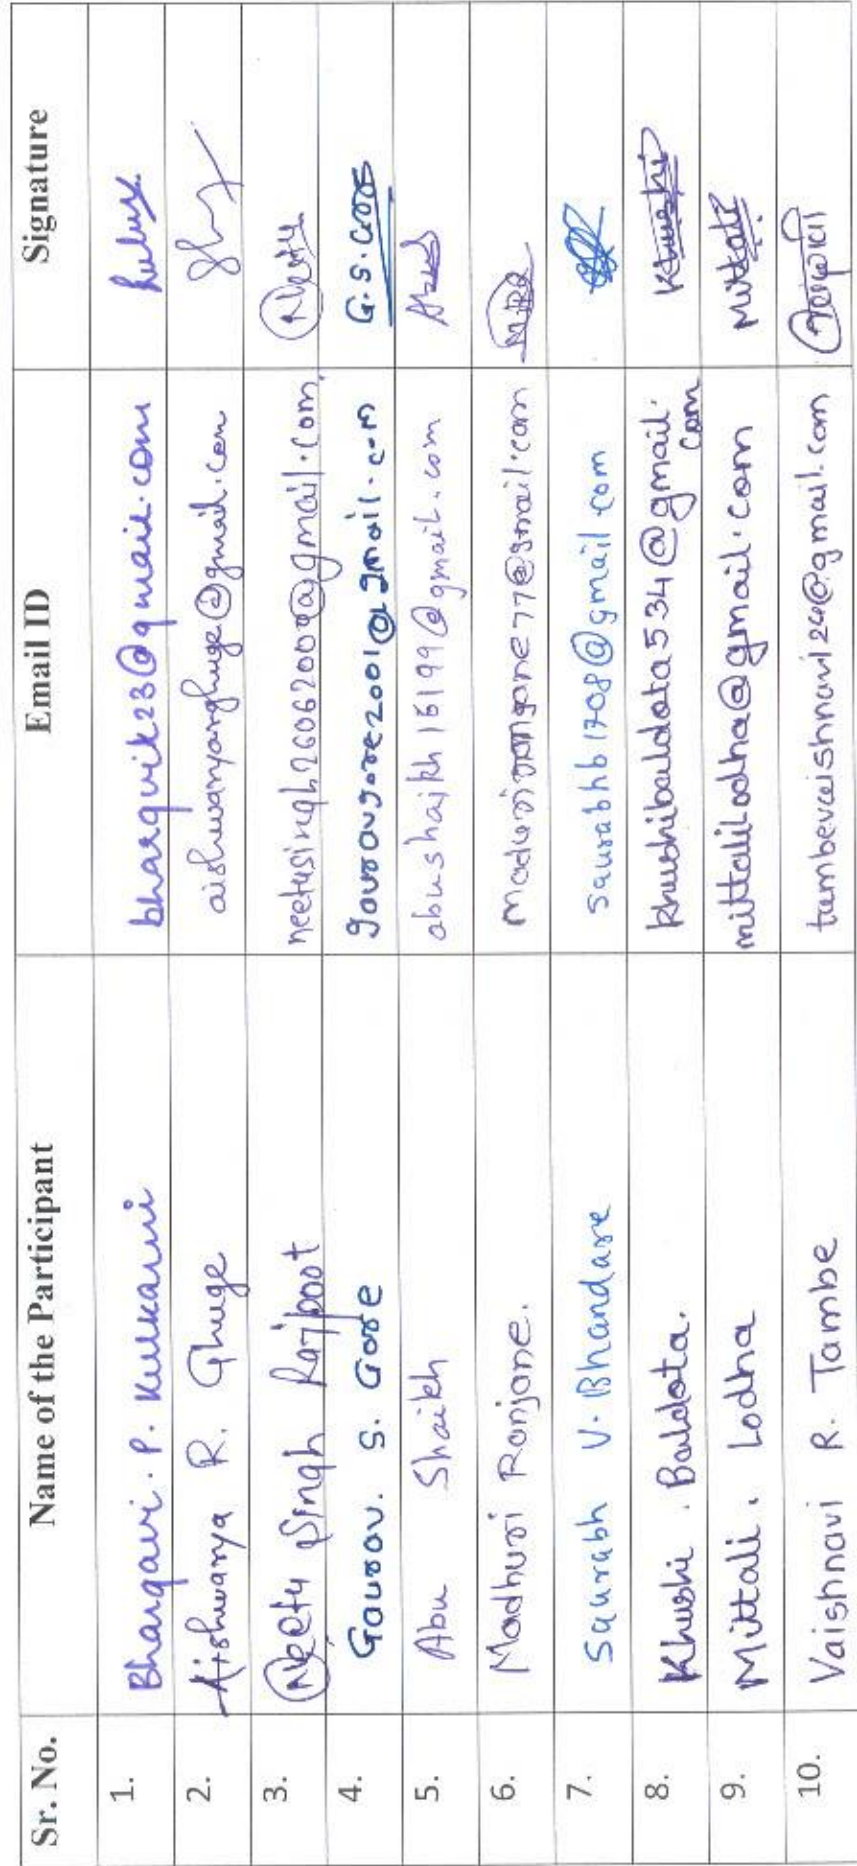 Sr. No. Name of the Participant Email ID Signature
1. Bhargavi. P. Kulkarni bhargvik23@gmail.com
2. Aishwarya R. Ghuge aishwaryarghuge@gmail.com
3. Neetu Singh Rajpoot neetusingh26062000@gmail.com. Neetu
4. Gourav. S. Gore gouravgore2001@gmail.com G.S.Gore
5. Abu Shaikh abushaikh15199@gmail.com
6. Madhuri Ranjane. madhuriranjane77@gmail.com
7. Saurabh V. Bhandare saurabhb1708@gmail.com
8. Khushi . Baldota. khushibaldota534@gmail. Khushi
com
9. Mittali . Lodha mittalilodha@gmail.com Mittali
10. Vaishnavi R. Tambe tambevaishnavi24@gmail.com